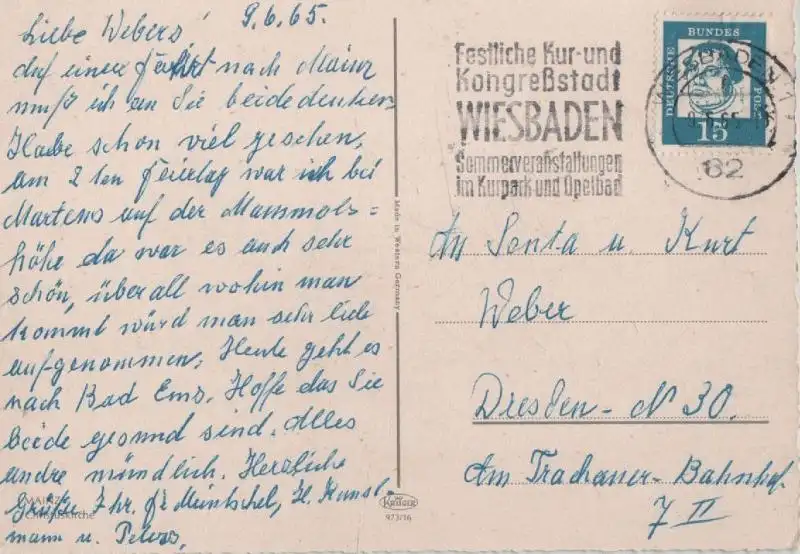 9.6.65.
Liebe Webers!
auf einer Fahrt nach Mainz
muß ich an Sie beide denken,
Habe schon viel gesehen,
am 2 ten Feiertag war ich bei
Martens auf der Mammols=
höhe da war es auch sehr
schön, überall wohin man
kommt würd man sehr lieb
aufgenommen, Heute geht es
nach Bad Ems. Hoffe das Sie
beide gesund sind. Alles
andre mündlich. Herzliche
Grüße Ihr. Meintschel, H. Kunsl
mann u. Peters,
MAINZ
Christuskirche
Made in Western Germany
Krüger
973/16
Festliche Kur-und
Kongreßstadt
WIESBADEN
Sommerveranstaltungen
im Kurpark und Opelbad
DEUTSCHE
BUNDES
POST
15
WIESBADEN 1
62
An Senta u. Kurt
Weber
Dresden - N 30.
Am Trachauer-Bahnhof
7 II